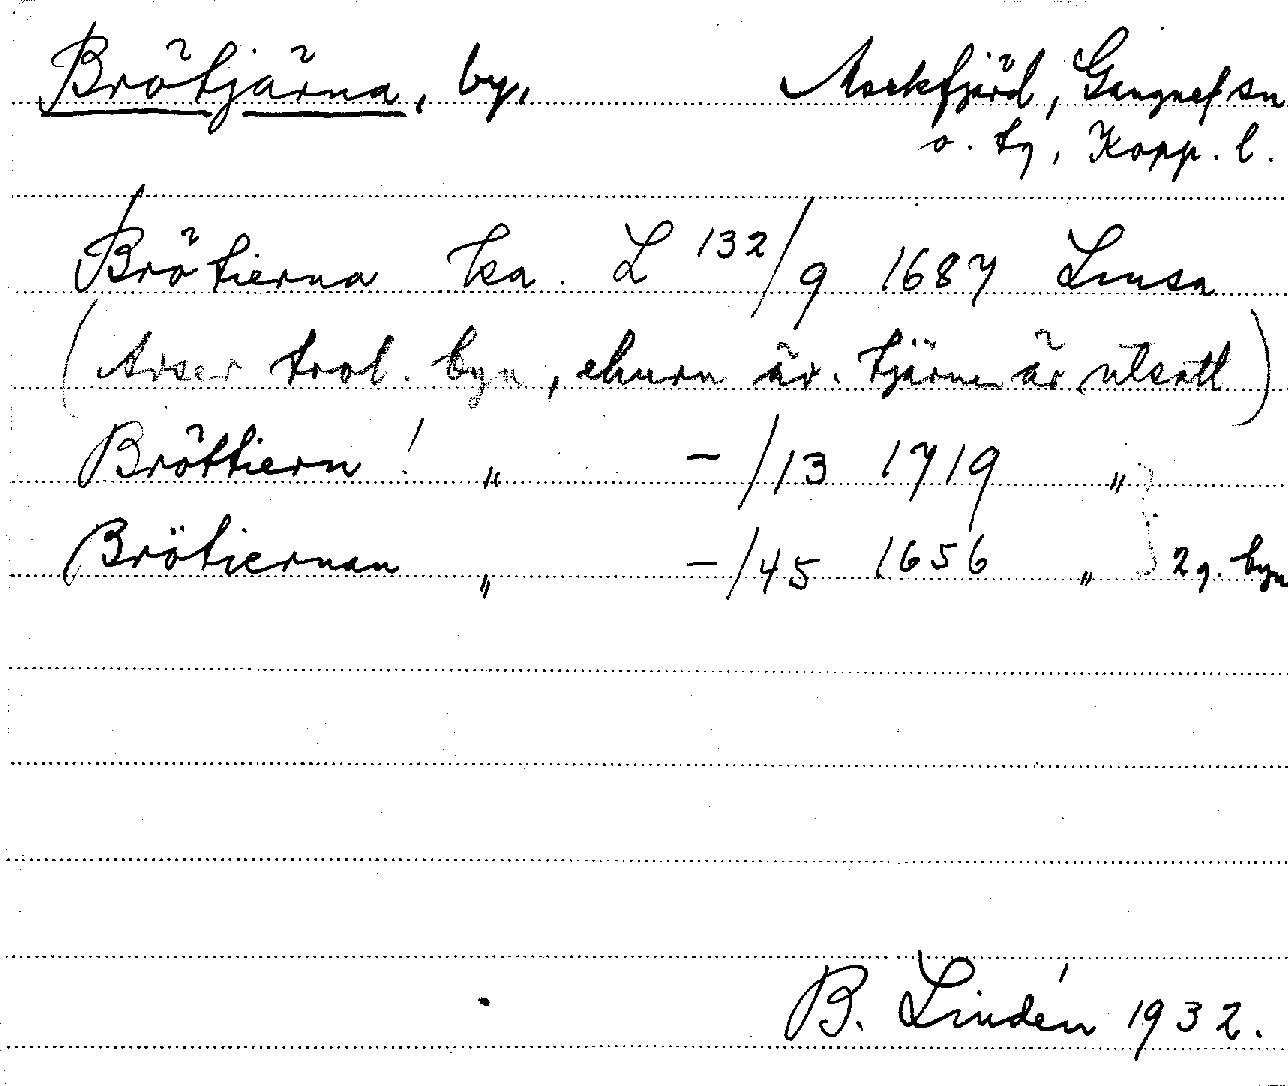 Brötjärna, by, Mockfjärd, Gagnef sn
o. tg, Kopp. l.
Brötierna ka. L 132/9 1687 Lmsa
(Avser trol. byn, ehuru äv. tjärnen är utsatt)
Bröttiern! " -/13 1719 "
Brötiernan " -/45 1656 " } 2 g. byn
B. Lindén 1932.